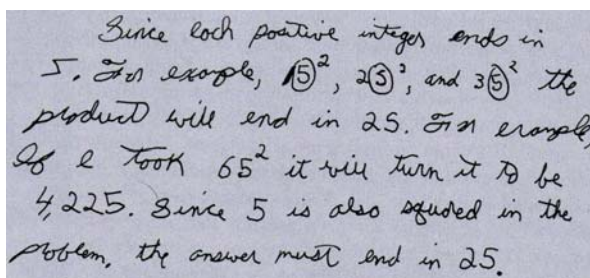 Since each positive integer ends in
5. For example, 15², 25², and 35² the
product will end in 25. For example,
If I took 65² it will turn it to be
4,225. Since 5 is also squared in the
problem, the answer must end in 25.